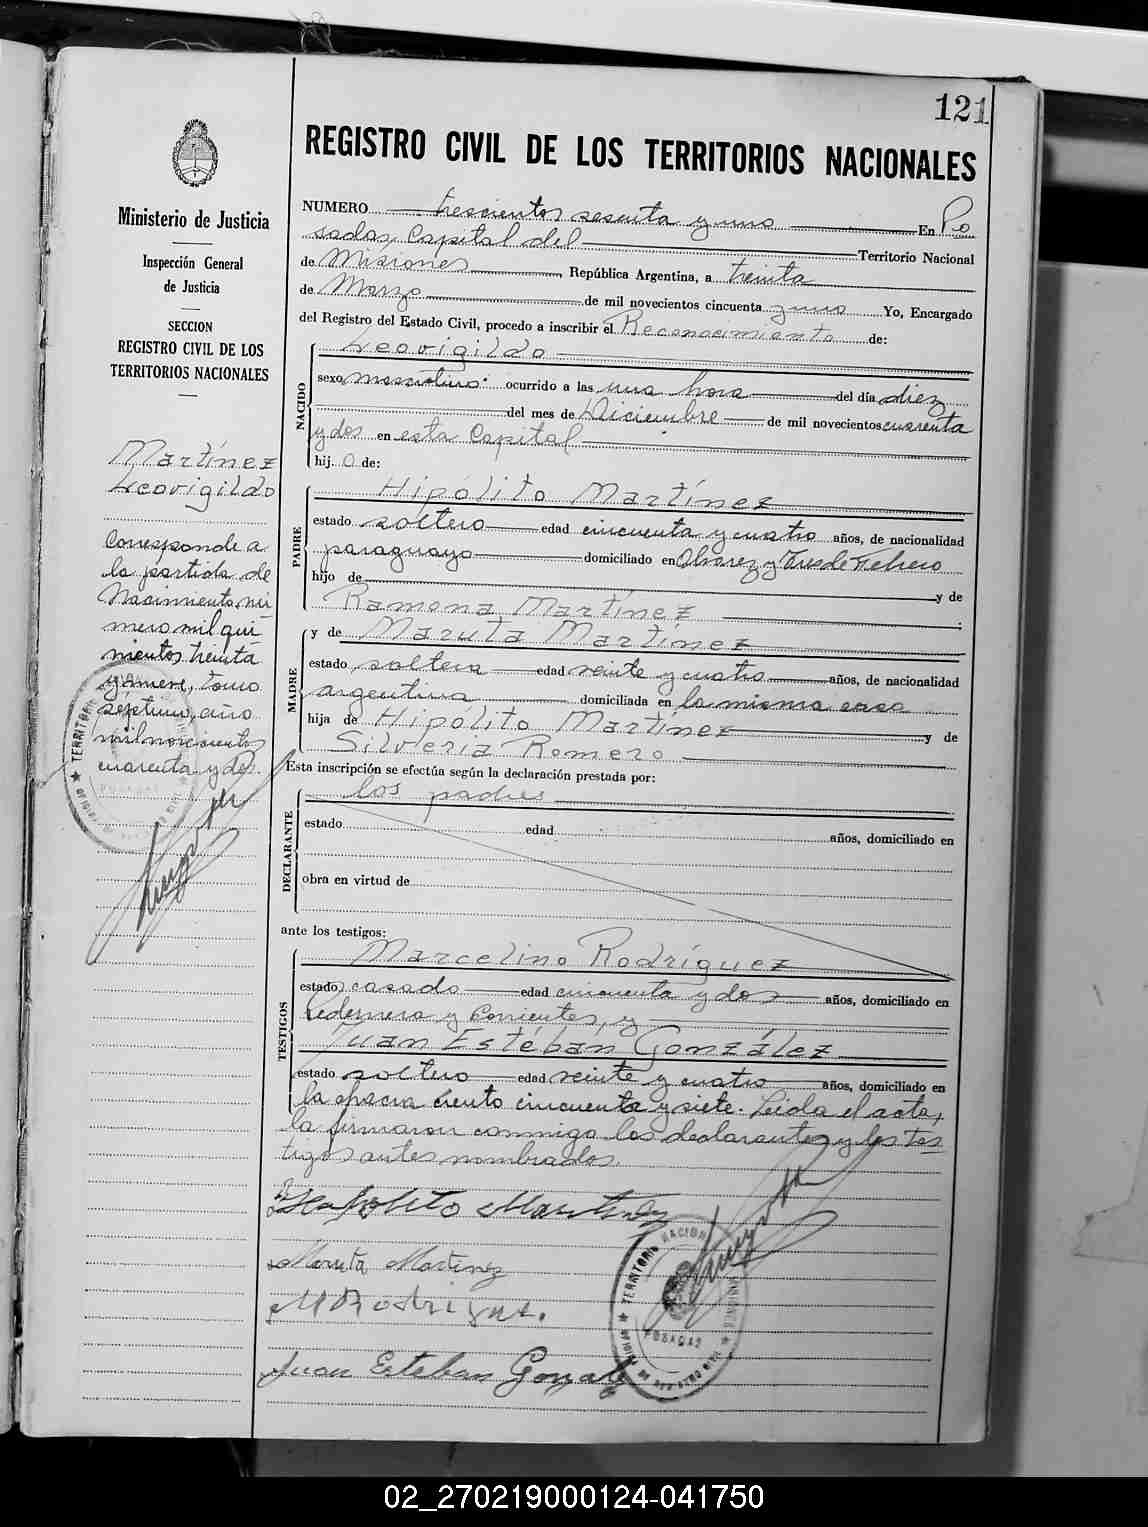 121
REGISTRO CIVIL DE LOS TERRITORIOS NACIONALES
Ministerio de Justicia
Inspección General
de Justicia
SECCION
REGISTRO CIVIL DE LOS
TERRITORIOS NACIONALES
Martínez
Leovigildo
Corresponde a
la partida de
Nacimiento nú-
mero mil qui-
nientos treinta
y nueve, tomo
séptimo, año
mil novecientos
cuarenta y dos.
NUMERO trescientos sesenta y uno En Po
sadas Capital del Territorio Nacional
de Misiones, República Argentina, a treinta
de Marzo de mil novecientos cincuenta y uno Yo, Encargado
del Registro del Estado Civil, procedo a inscribir el Reconocimiento de:
Leovigildo
NACIDO
sexo masculino ocurrido a las una hora del día diez
del mes de Diciembre de mil novecientos cuarenta
y dos en esta Capital
hij o de:
PADRE
Hipólito Martínez
estado soltero edad cincuenta y cuatro años, de nacionalidad
paraguayo domiciliado en Alvarez y Tres de Febrero
hijo de y de
Ramona Martínez
MADRE
y de Maruta Martinez
estado soltera edad veinte y cuatro años, de nacionalidad
argentina domiciliada en la misma casa
hija de Hipólito Martínez y de
Silveria Romero
Esta inscripción se efectúa según la declaración prestada por:
los padres
DECLARANTE
estado edad años, domiciliado en
obra en virtud de
ante los testigos:
TESTIGOS
Marcelino Rodríguez
estado casado edad cincuenta y dos años, domiciliado en
Pedernera y Corrientes, y
Juan Estéban González
estado soltero edad veinte y cuatro años, domiciliado en
la chacra ciento cincuenta y siete. Leída el acta,
la firmaron conmigo los declarantes y los tes
tigos antes nombrados.
Hipolito Martinez
Maruta Martinez
M Rodrigue.
Juan Esteban Gonzalez
TERRITORIO NACIONAL
POSADAS
02_270219000124-041750